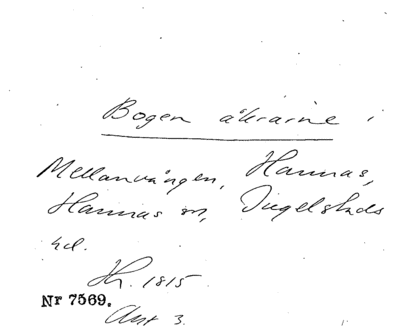 Bogen åkrarne i
Mellanvången, Hannas,
Hannas sn, Ingelstads
hd.
Hr. 1815
Nr 7569.
Akt 3.